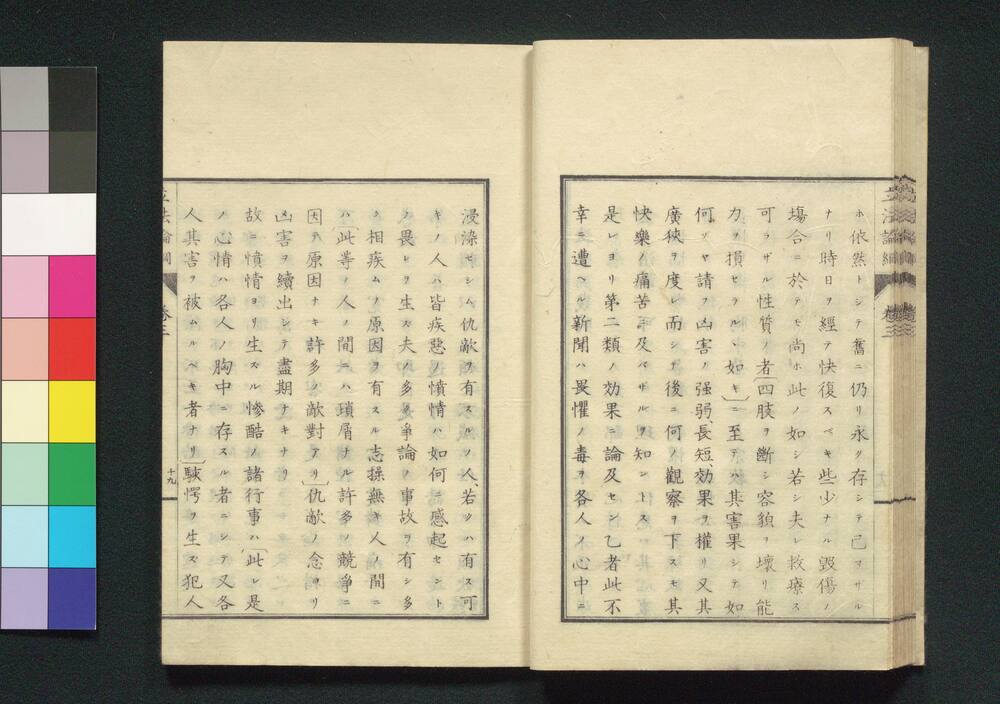 ホ依然トシテ舊ニ仍リ永ク存シテ已マサル
ナリ時日ヲ經テ快復スベキ些少ナル毀傷ノ
塲合ニ於テモ尚ホ此ノ如シ若シ夫レ救療ス
可ラザル性質ノ者〔四肢ヲ斷シ容貌ヲ壞リ能
力ヲ損セラルヽ如キ〕ニ至テハ其害果シテ如
何ゾヤ請フ凶害ノ强弱、長短、効果ヲ權リ又其
廣狹ヲ度レ而シテ後ニ何ノ觀察ヲ下スモ其
快樂ノ痛苦ニ及バザルヲ知ントス
是レヨリ第二類ノ効果ニ論及セン乙者此不
幸ニ遭ヘル新聞ハ畏懼ノ毒ヲ各人ノ心中ニ
浸染セシム仇敵ヲ有スルノ人、若クハ有ス可
キノ人ハ皆疾惡ノ憤情ハ如何ニ感起セント
ノ畏レヲ生ス夫ノ多夛爭論ノ事故ヲ有シ多
ク相疾ムノ原因ヲ有スル志操無キ人ノ間ニ
ハ〔此等ノ人ノ間ニハ瑣屑ナル許多ノ競爭ニ
因テ原因ナキ許多ノ敵對アリ〕仇敵ノ念ヨリ
凶害ヲ續出シテ盡期ナキナリ
故ニ憤情ヨリ生ズル慘酷ノ諸行事ハ〔此レ是
ノ心情ハ各人ノ胸中ニ存スル者ニシテ又各
人其害ヲ被ムルベキ者ナリ〕駭愕ヲ生ズ犯人
立法論綱
卷三
十九